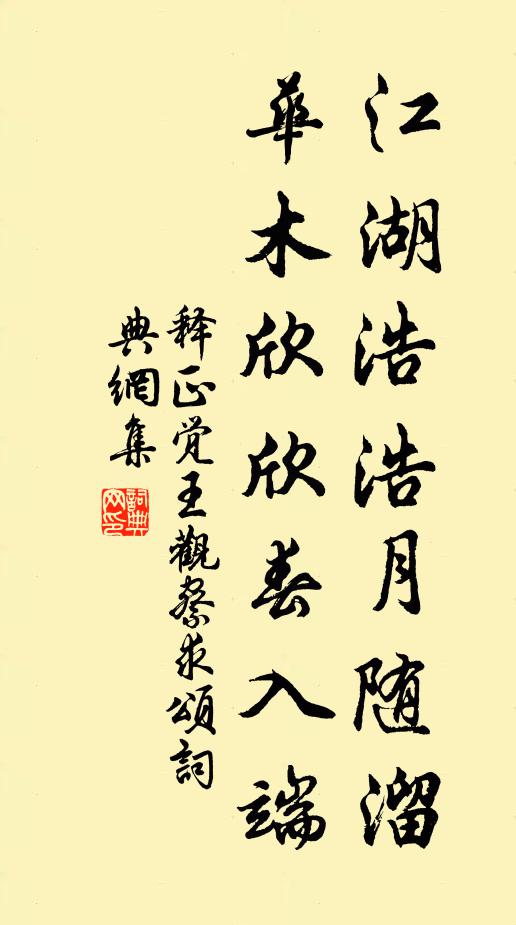 江湖浩浩月随溜
華木欣欣春入端
释正觉王觀察求頌詞
典網集
詞典
网印